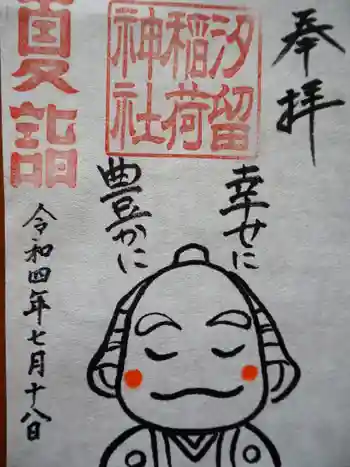 奉拝
汐留
稲荷
神社
夏詣
幸せに
豊かに
令和四年七月十八日